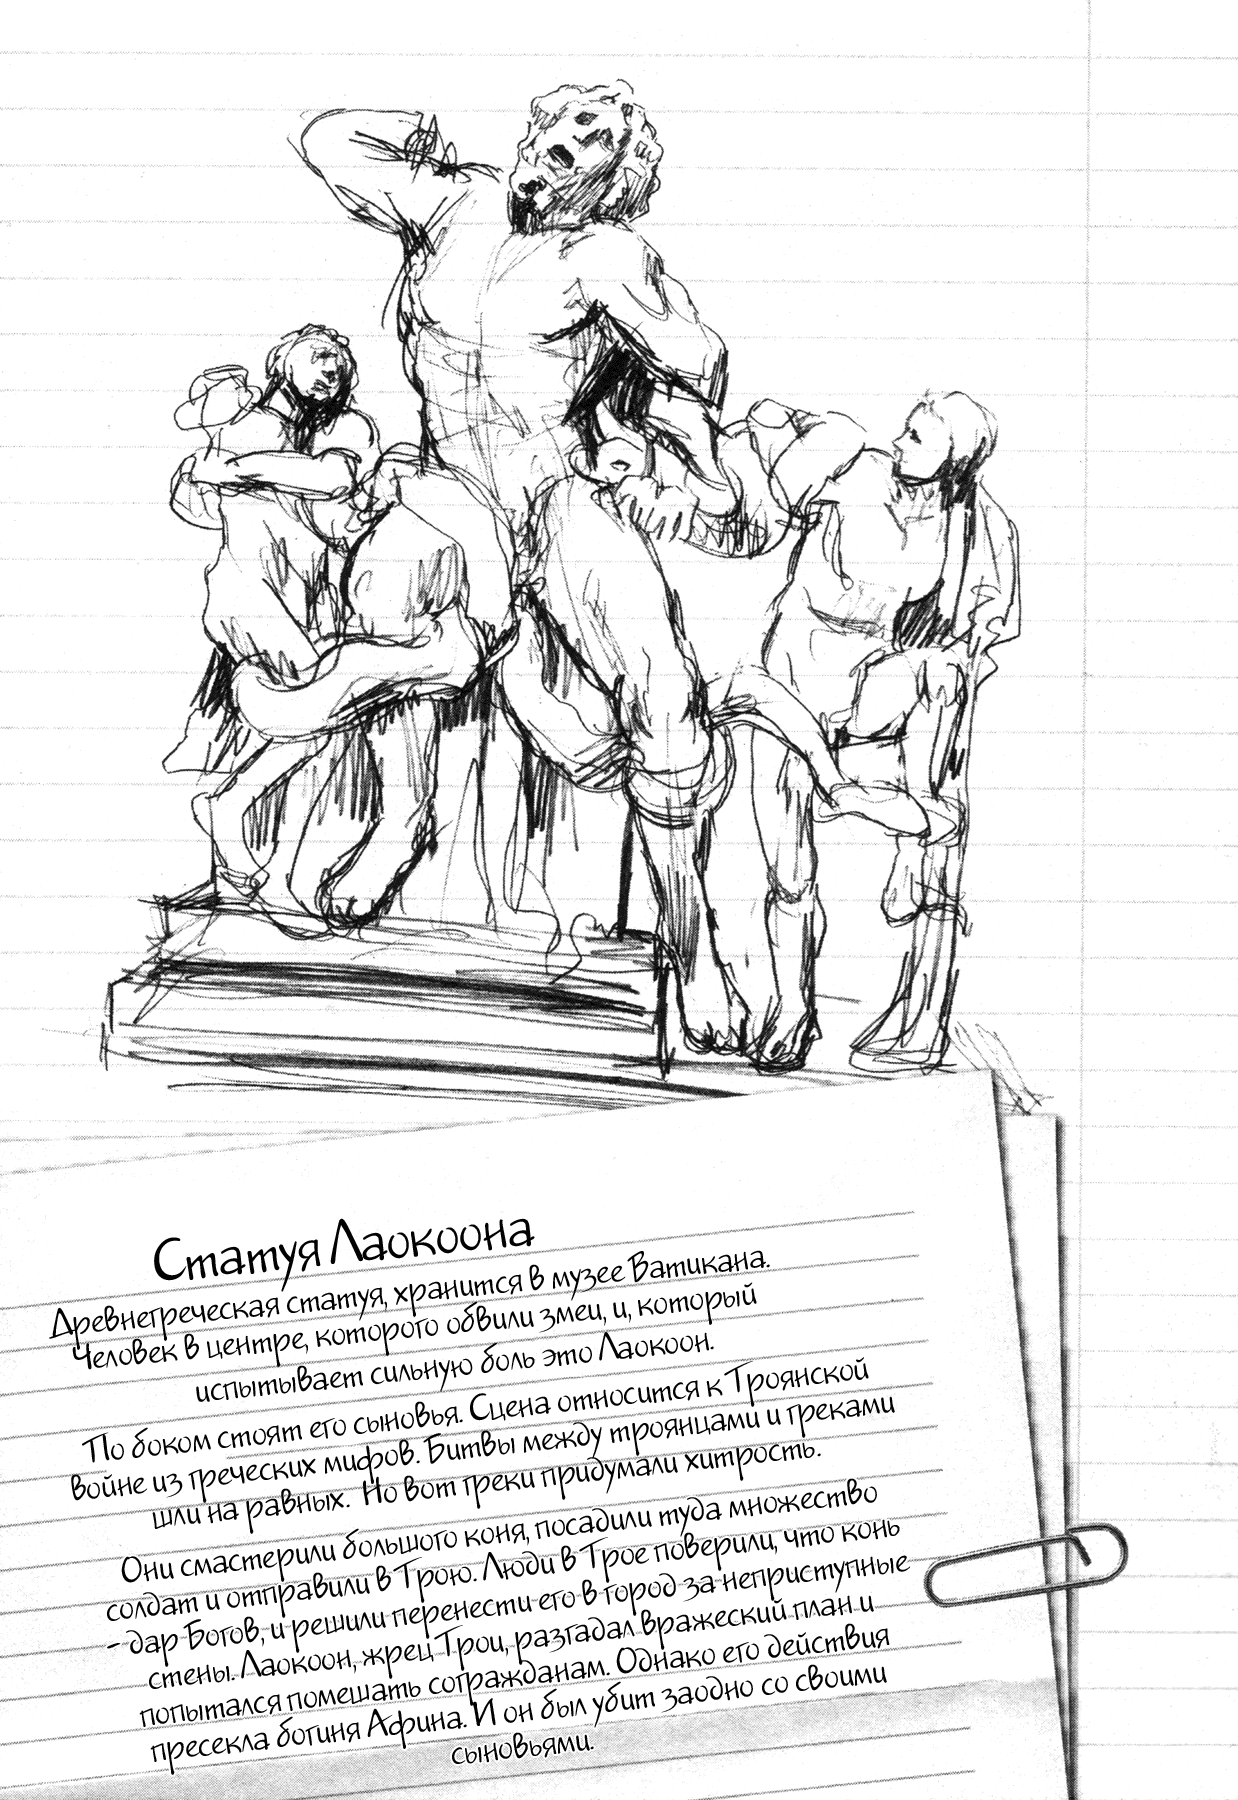 Статуя Лаокоона
Древнегреческая статуя, хранится в музее Ватикана.
Человек в центре, которого обвили змеи, и, который
испытывает сильную боль это Лаокоон.
По боком стоят его сыновья. Сцена относится к Троянской
войне из греческих мифов. Битвы между троянцами и греками
шли на равных. Но вот греки придумали хитрость.
Они смастерили большого коня, посадили туда множество
солдат и отправили в Трою. Люди в Трое поверили, что конь
- дар Богов, и решили перенести его в город за неприступные
стены. Лаокоон, жрец Трои, разгадал вражеский план и
попытался помешать согражданам. Однако его действия
пресекла богиня Афина. И он был убит заодно со своими
сыновьями.